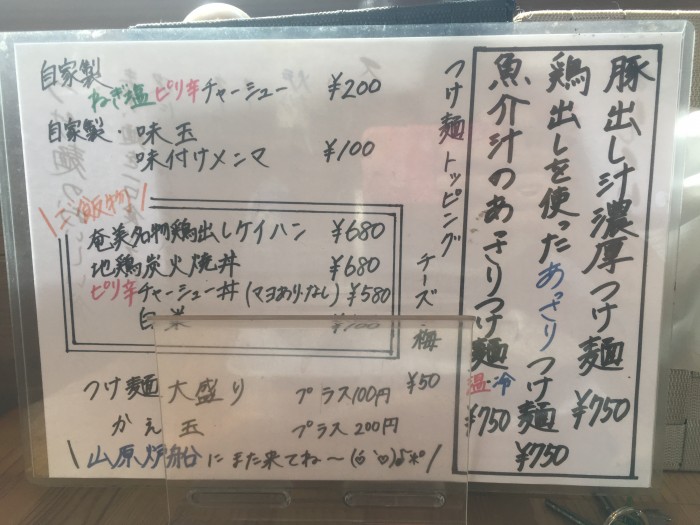 豚出し汁濃厚つけ麺
¥750
鶏出しを使ったあっさりつけ麺
¥750
魚介汁のあっさりつけ麺
温・冷
¥750
つけ麺トッピング
チーズ・梅
¥50
自家製
ねぎ塩ピリ辛チャーシュー ¥200
自家製・味玉
味付けメンマ ¥100
\ご飯物/
奄美名物鶏出しケイハン ¥680
地鶏炭火焼丼 ¥680
ピリ辛チャーシュー丼(マヨあり・なし) ¥580
白米 ¥100
つけ麺大盛り プラス100円
かえ玉 プラス200円
\山原炉船にまた来てね〜